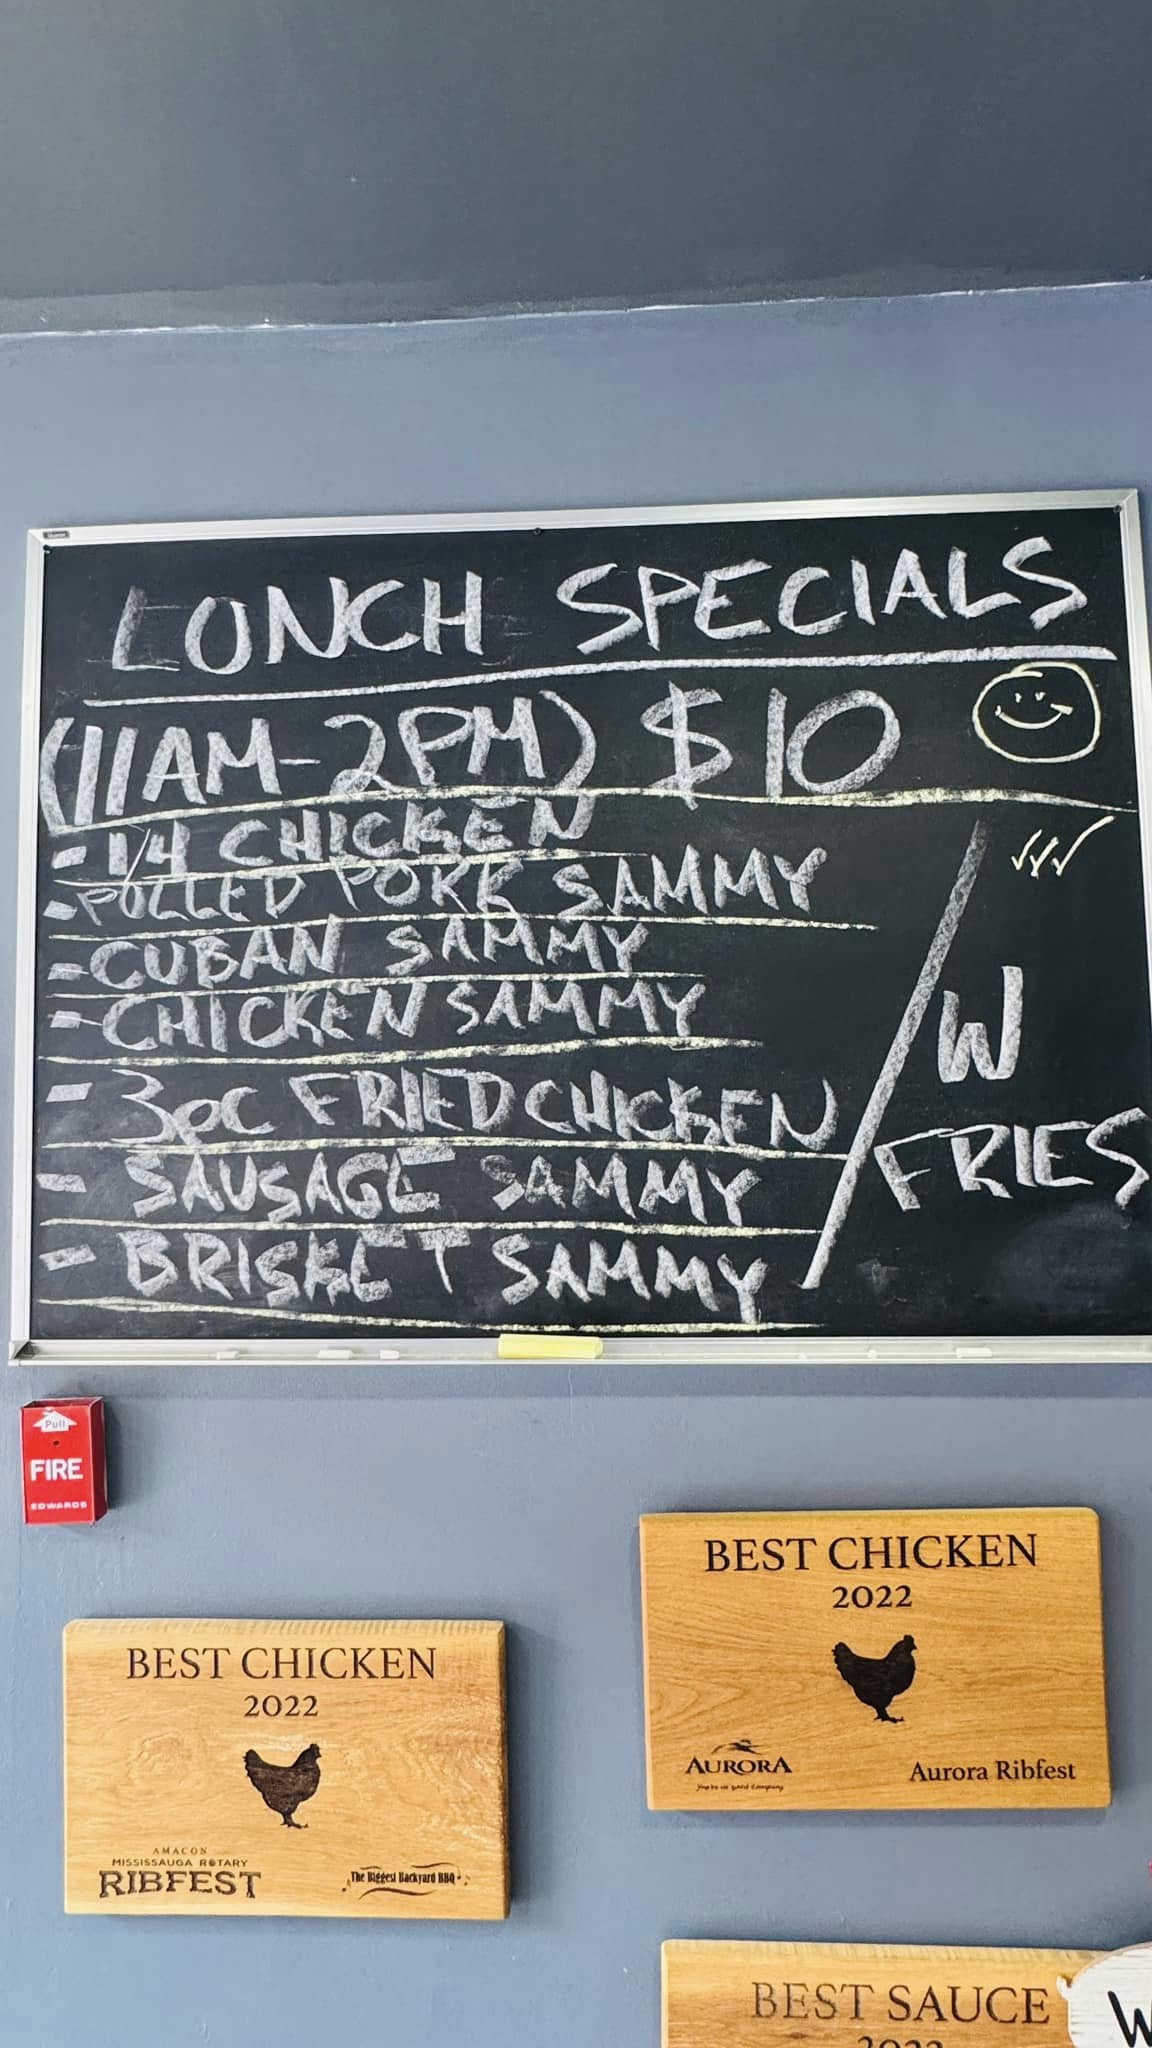 LUNCH SPECIALS
(11AM-2PM) $10
- 1/4 CHICKEN
- PULLED PORK SAMMY
- CUBAN SAMMY
- CHICKEN SAMMY
- 3pc FRIED CHICKEN
- SAUSAGE SAMMY
- BRISKET SAMMY
W
FRIES
Pull
FIRE
EDWARDS
BEST CHICKEN
2022
AURORA
Aurora Ribfest
BEST CHICKEN
2022
AMACON
MISSISSAUGA ROTARY
RIBFEST
The Biggest Backyard BBQ
BEST SAUCE
2022
W